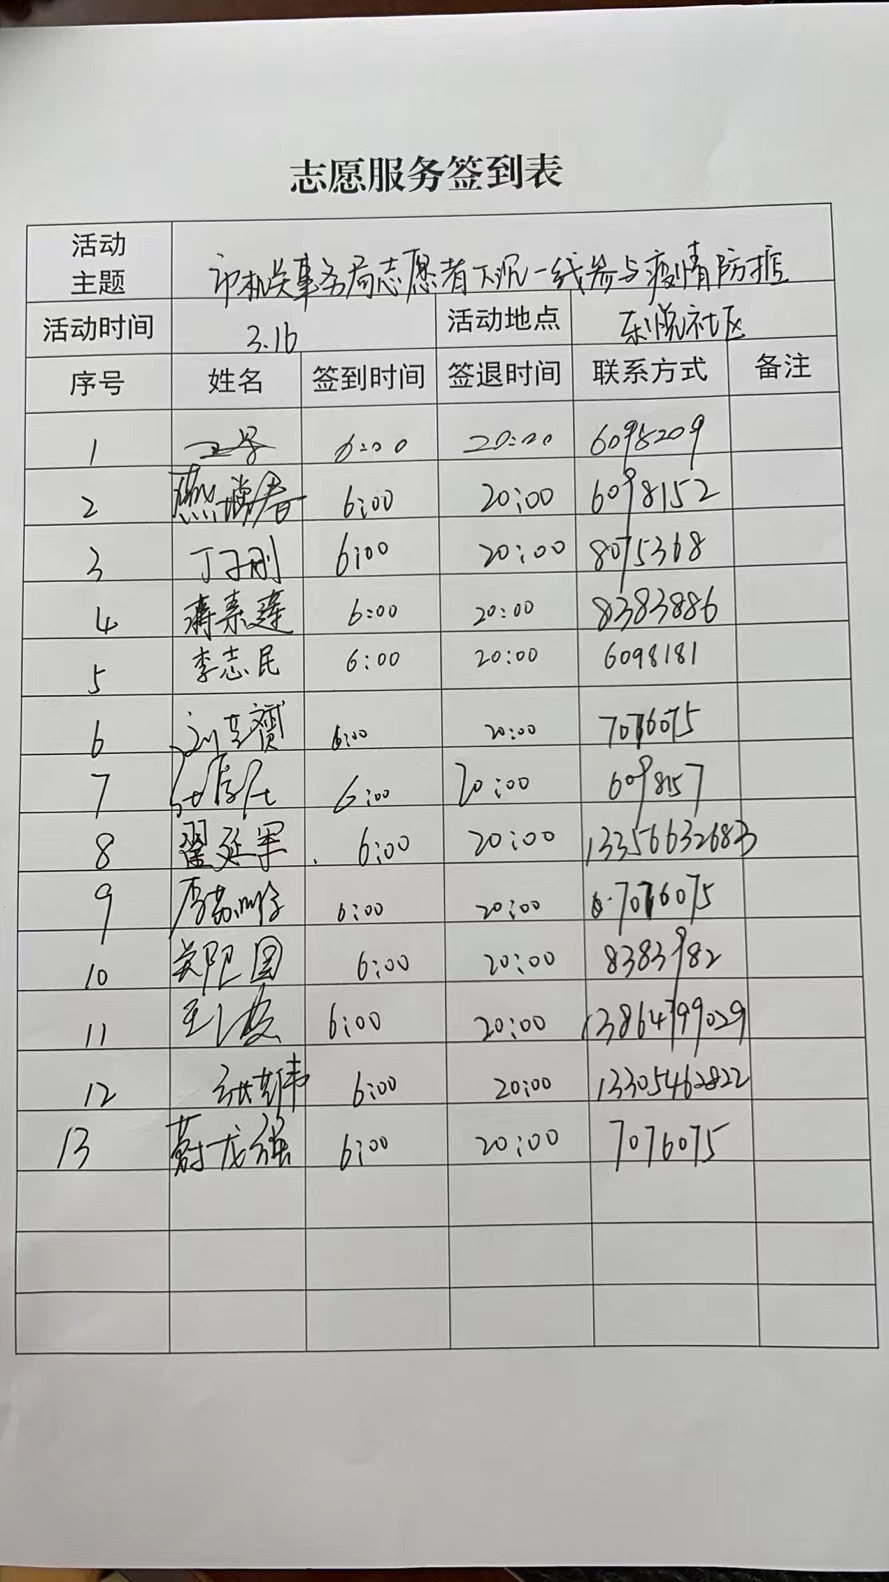 志愿服务签到表
活动主题 市机关事务局志愿者下沉一线参与疫情防控
活动时间 3.16 活动地点 东悦社区
序号 姓名 签到时间 签退时间 联系方式 备注
1 6:00 20:00 6098209
2 6:00 20:00 6098152
3 丁子刚 6:00 20:00 8075368
4 蒋素莲 6:00 20:00 8383886
5 李志民 6:00 20:00 6098181
6 6:00 20:00 7076075
7 6:00 20:00 6098157
8 翟延军 6:00 20:00 13356632683
9 6:00 20:00 7076075
10 6:00 20:00 8383982
11 6:00 20:00 13864799029
12 6:00 20:00 13305462822
13 蔚龙强 6:00 20:00 7076075